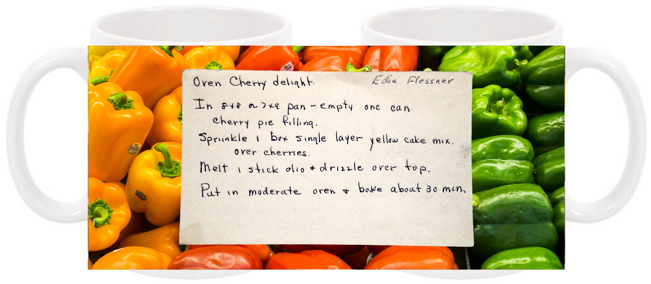 Oven Cherry delight Edie Flessner
In 8x8 or 7x8 pan - empty one can
cherry pie filling.
Sprinkle 1 box single layer yellow cake mix.
over cherries.
Melt 1 stick olio + drizzle over top.
Put in moderate oven + bake about 30 min.